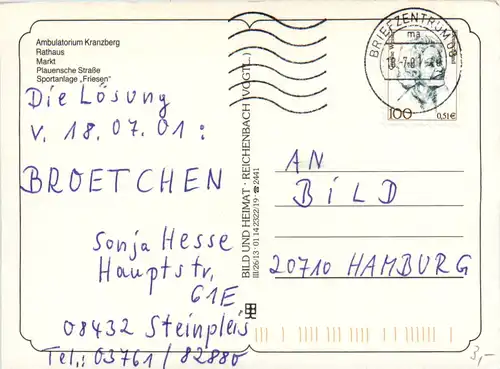 Ambulatorium Kranzberg
Rathaus
Markt
Plauensche Straße
Sportanlage „Friesen"
Die Lösung
v. 18.07.01:
BROETCHEN
Sonja Hesse
Hauptstr.
61E
08432 Steinpleis
Tel.: 03761/82880
BILD UND HEIMAT · REICHENBACH (VOGTL.)
III/26/13 · 01 14 2322/19 · ☎ 2441
BRIEFZENTRUM 08
ma
100
0,51€
AN
BILD
20710 HAMBURG
3,-